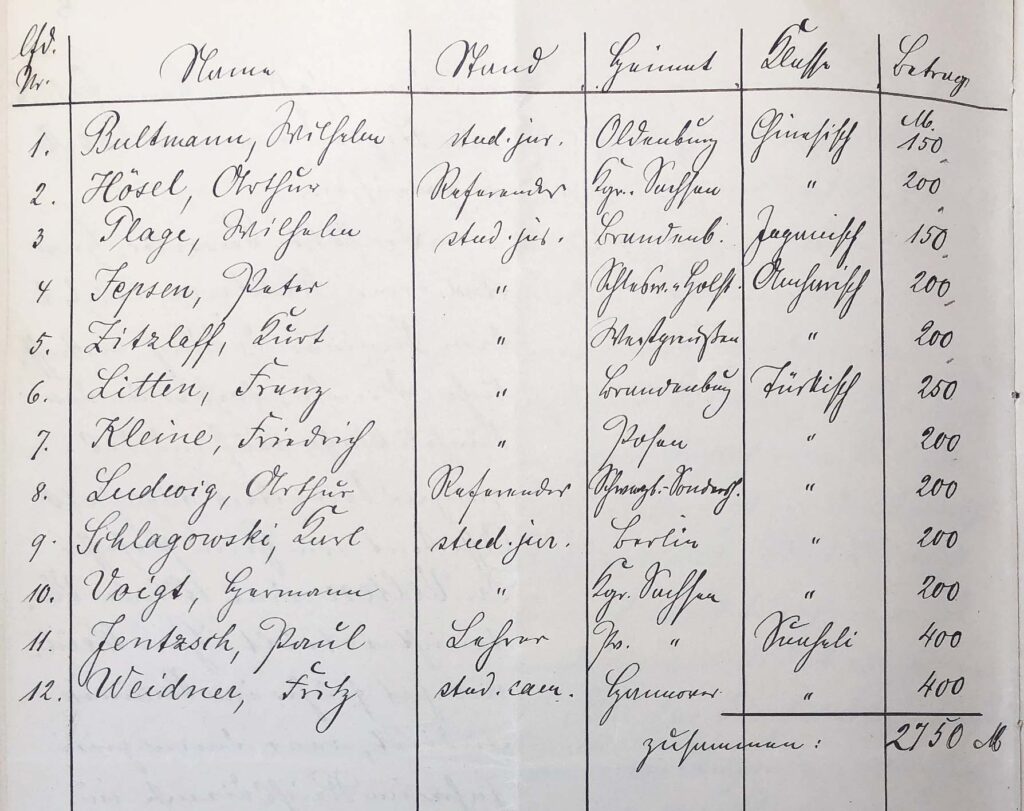 Lfd. Nr. Name Stand Heimat Klasse Betrag
M.
1. Bultmann, Wilhelm stud. jur. Oldenburg Chinesisch 150
2. Hösel, Arthur Referendar Kgr. Sachsen " 200
3 Plage, Wilhelm stud. jur. Brandenb. Japanisch 150
4 Jepsen, Peter " Schlesw. u Holst. Amharisch 200
5. Zitzlaff, Kurt " Westpreußen " 200
6. Litten, Franz " Brandenburg Türkisch 250
7. Kleine, Friedrich " Posen " 200
8. Ludwig, Arthur Referendar Schwarzb.-Sondersh. " 200
9. Schlagowski, Kurt stud. jur. Berlin " 200
10. Voigt, Hermann " Kgr. Sachsen " 200
11. Jentzsch, Paul Lehrer Pr. " Suaheli 400
12. Weidner, Fritz stud. cam. Hannover " 400
zusammen: 2750 M